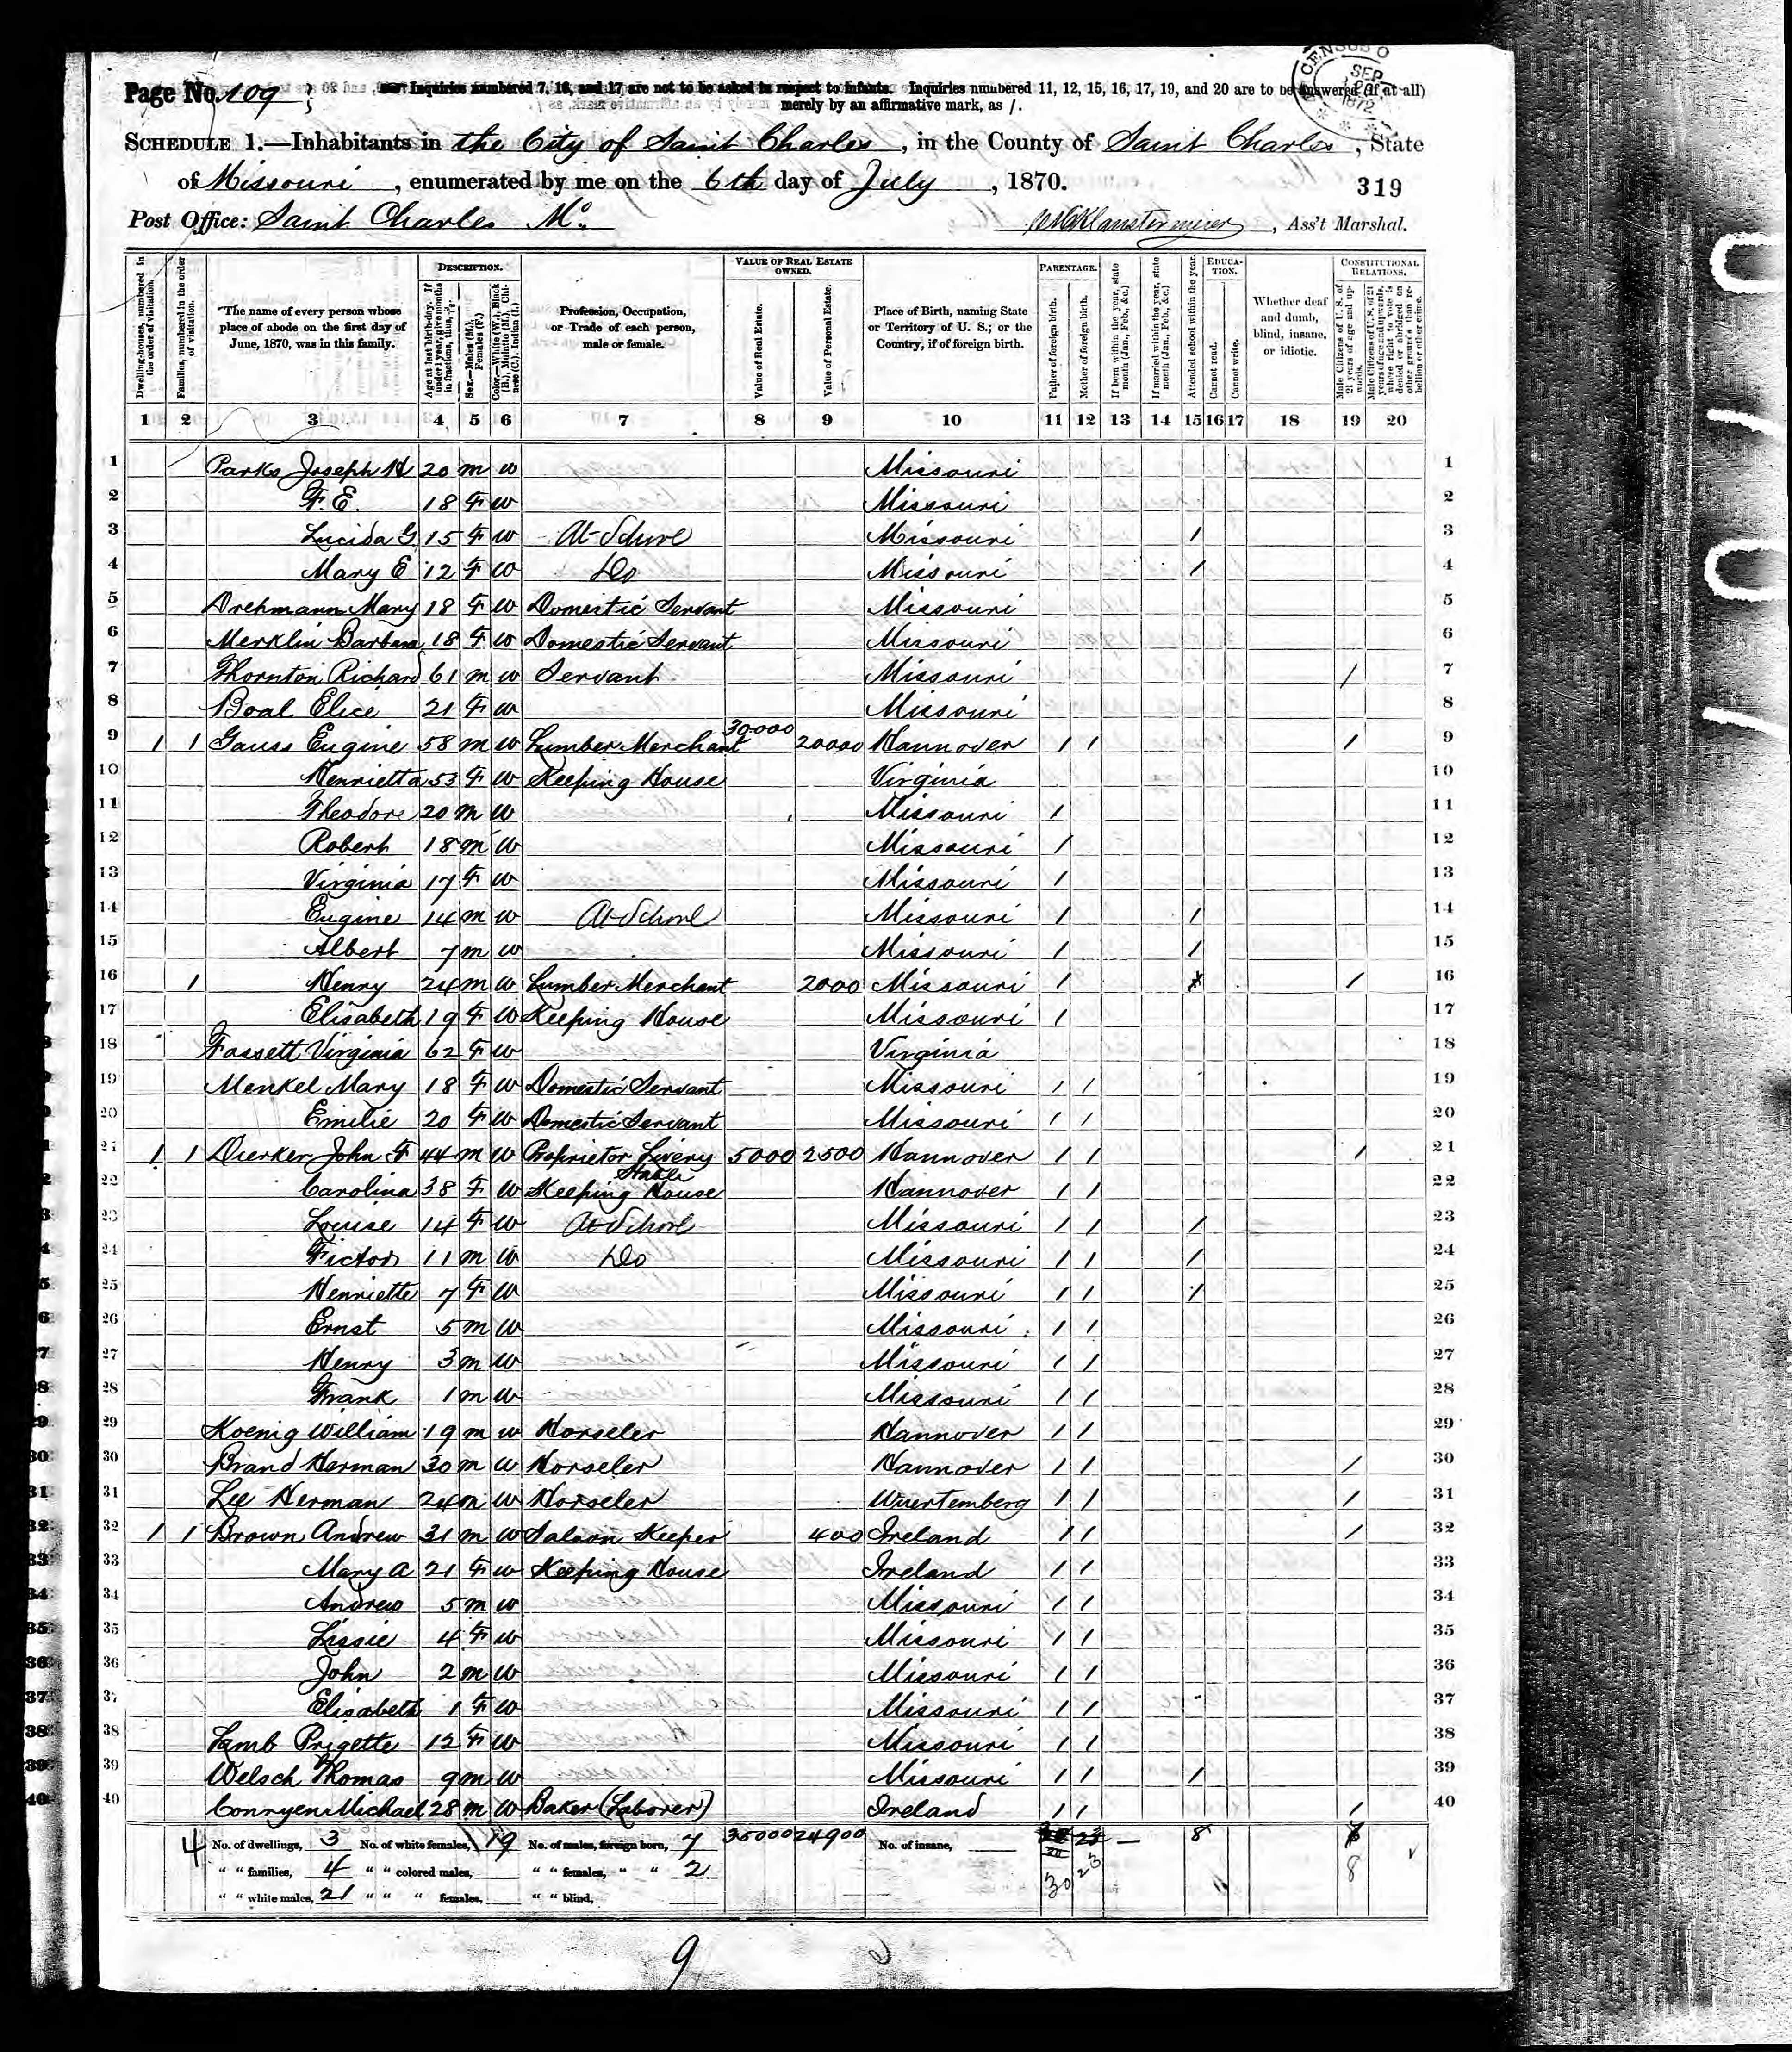 Page No. 109
Inquiries numbered 7, 16, and 17 are not to be asked in respect to infants. Inquiries numbered 11, 12, 15, 16, 17, 19, and 20 are to be answered (if at all)
merely by an affirmative mark, as /.
CENSUS O
SEP
1872
SCHEDULE 1.—Inhabitants in the City of Saint Charles, in the County of Saint Charles, State
of Missouri, enumerated by me on the 6th day of July, 1870.
319
Post Office: Saint Charles Mo.
, Ass't Marshal.
DESCRIPTION.
VALUE OF REAL ESTATE OWNED.
PARENTAGE.
EDUCATION.
CONSTITUTIONAL RELATIONS.
Dwelling-houses, numbered in the order of visitation.
Families, numbered in the order of visitation.
The name of every person whose place of abode on the first day of June, 1870, was in this family.
Age at last birth-day. If under 1 year, give months in fractions, thus,
Sex.—Males (M.), Females (F.)
Color.—White (W.), Black (B.), Mulatto (M.), Chinese (C.), Indian (I.)
Profession, Occupation, or Trade of each person, male or female.
Value of Real Estate.
Value of Personal Estate.
Place of Birth, naming State or Territory of U. S.; or the Country, if of foreign birth.
Father of foreign birth.
Mother of foreign birth.
If born within the year, state month (Jan., Feb., &c.)
If married within the year, state month (Jan., Feb., &c.)
Attended school within the year.
Cannot read.
Cannot write.
Whether deaf and dumb, blind, insane, or idiotic.
Male Citizens of U. S. of 21 years of age and upwards.
Male Citizens of U. S. of 21 years of age and upwards, whose right to vote is denied or abridged on other grounds than rebellion or other crime.
1 2 3 4 5 6 7 8 9 10 11 12 13 14 15 16 17 18 19 20
1 Parks Joseph H 20 m w Missouri 1
2 F. E. 18 F w Missouri 2
3 Lucida G 15 F w At School Missouri / 3
4 Mary E 12 F w Do Missouri / 4
5 Drehmann Mary 18 F w Domestic Servant Missouri 5
6 Merklin Barbara 18 F w Domestic Servant Missouri 6
7 Thornton Richard 61 m w Servant Missouri / 7
8 Boal Elice 21 F w Missouri 8
9 1 1 Gauss Eugine 58 m w Lumber Merchant 30000 20000 Hannover / / / 9
10 Henrietta 53 F w Keeping House Virginia 10
11 Theodore 20 m w Missouri / 11
12 Robert 18 m w Missouri / 12
13 Virginia 17 F w Missouri / 13
14 Eugine 14 m w At School Missouri / / 14
15 Albert 7 m w Missouri / / 15
16 1 Henry 24 m w Lumber Merchant 2000 Missouri / / 16
17 Elisabeth 19 F w Keeping House Missouri / 17
18 Fassett Virginia 62 F w Virginia 18
19 Menkel Mary 18 F w Domestic Servant Missouri / / 19
20 Emilie 20 F w Domestic Servant Missouri / / 20
21 1 1 Dierker John F 44 m w Proprietor Livery Stable 5000 2500 Hannover / / / 21
22 Carolina 38 F w Keeping House Hannover / / 22
23 Louise 14 F w At School Missouri / / / 23
24 Fictor 11 m w Do Missouri / / / 24
25 Henriette 7 F w Missouri / / / 25
26 Ernst 5 m w Missouri / / 26
27 Henry 3 m w Missouri / / 27
28 Frank 1 m w Missouri / / 28
29 Koenig William 19 m w Horseler Hannover / / 29
30 Brand Herman 30 m w Horseler Hannover / / / 30
31 Lee Herman 24 m w Horseler Wuertemberg / / / 31
32 1 1 Brown Andrew 31 m w Saloon Keeper 400 Ireland / / / 32
33 Mary A 21 F w Keeping House Ireland / / 33
34 Andrew 5 m w Missouri / / 34
35 Lissie 4 F w Missouri / / 35
36 John 2 m w Missouri / / 36
37 Elisabeth 1 F w Missouri / / 37
38 Lamb Prigette 12 F w Missouri / / 38
39 Welsch Thomas 9 m w Missouri / / / 39
40 Conryen Michael 28 m w Baker (Laborer) Ireland / / / 40
4 No. of dwellings, 3 No. of white females, 19 No. of males, foreign born, 7 35000 24900 No. of insane, 8
" " families, 4 " " colored males, " " females, " " 2 30 23 8
" " white males, 21 " " " females, " " blind,
9